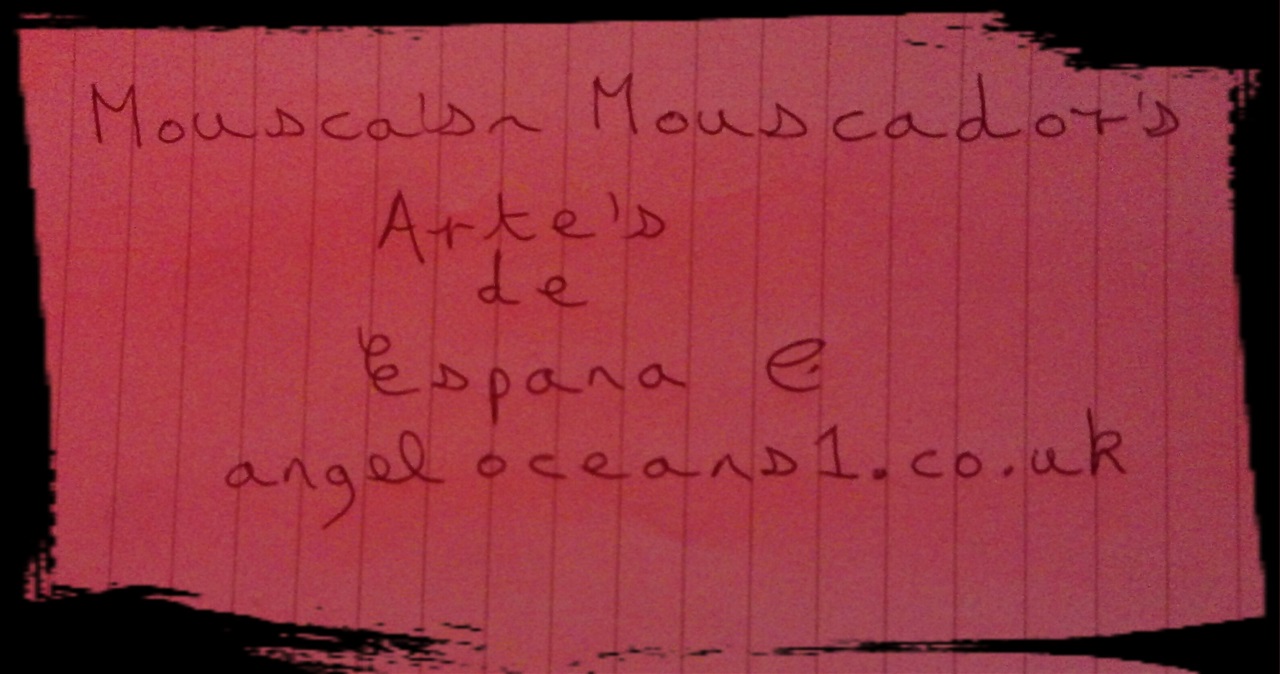 Mousca'sn Mouscador's
Arte's
de
Espana e
angeloceans1.co.uk